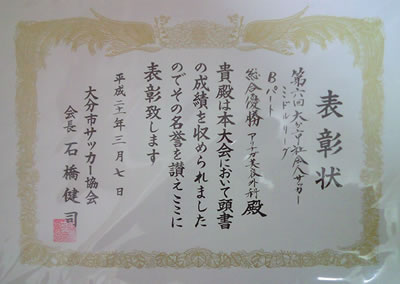 表彰状
第六回大分市社会人サッカー
ミドルリーグ
Bパート
総合優勝 アーナイ美容外科殿
貴殿は本大会において頭書
の成績を収められました
のでその名誉を讃えここに
表彰致します
平成二十一年三月七日
大分市サッカー協会
会長 石橋健司